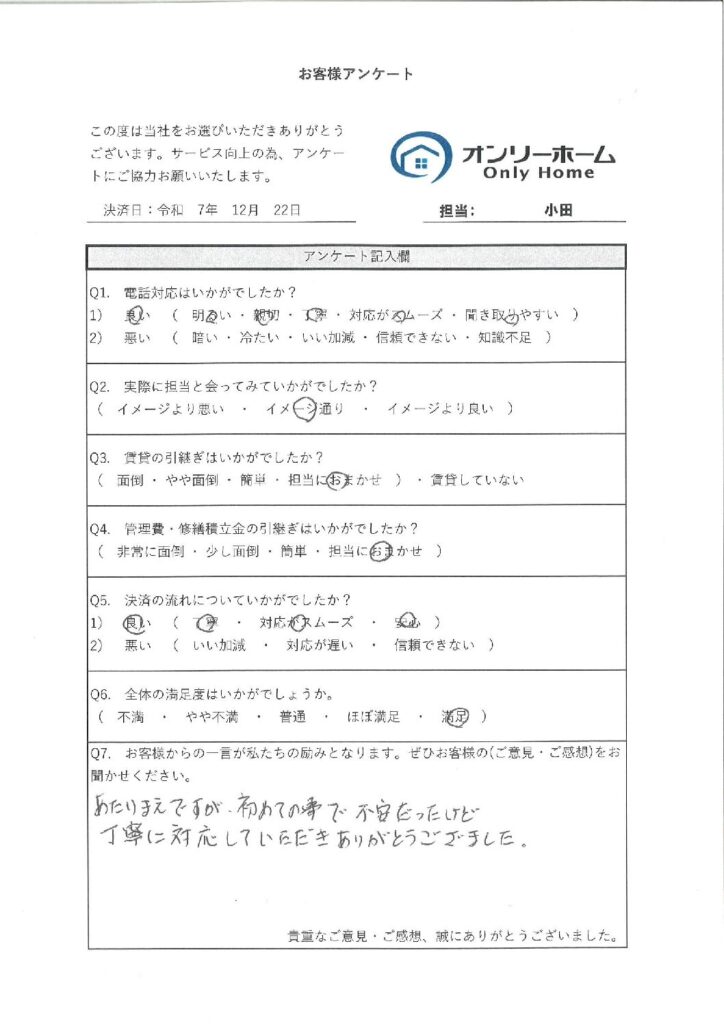 お客様アンケート
この度は当社をお選びいただきありがとう
ございます。サービス向上の為、アンケー
トにご協力お願いいたします。
オンリーホーム
Only Home
決済日：令和 7年 12月 22日
担当： 小田
アンケート記入欄
Q1. 電話対応はいかがでしたか？
1) 良い （ 明るい ・ 親切 ・ 丁寧 ・ 対応がスムーズ ・ 聞き取りやすい ）
2) 悪い （ 暗い ・ 冷たい ・ いい加減 ・ 信頼できない ・ 知識不足 ）
Q2. 実際に担当と会ってみていかがでしたか？
（ イメージより悪い ・ イメージ通り ・ イメージより良い ）
Q3. 賃貸の引継ぎはいかがでしたか？
（ 面倒 ・ やや面倒 ・ 簡単 ・ 担当におまかせ ） ・ 賃貸していない
Q4. 管理費・修繕積立金の引継ぎはいかがでしたか？
（ 非常に面倒 ・ 少し面倒 ・ 簡単 ・ 担当におまかせ ）
Q5. 決済の流れについていかがでしたか？
1) 良い （ 丁寧 ・ 対応がスムーズ ・ 安心 ）
2) 悪い （ いい加減 ・ 対応が遅い ・ 信頼できない ）
Q6. 全体の満足度はいかがでしょうか。
（ 不満 ・ やや不満 ・ 普通 ・ ほぼ満足 ・ 満足 ）
Q7. お客様からの一言が私たちの励みとなります。ぜひお客様の(ご意見・ご感想)をお
聞かせください。
あたりまえですが、初めての事で不安だったけど
丁寧に対応していただきありがとうござました。
貴重なご意見・ご感想、誠にありがとうございました。